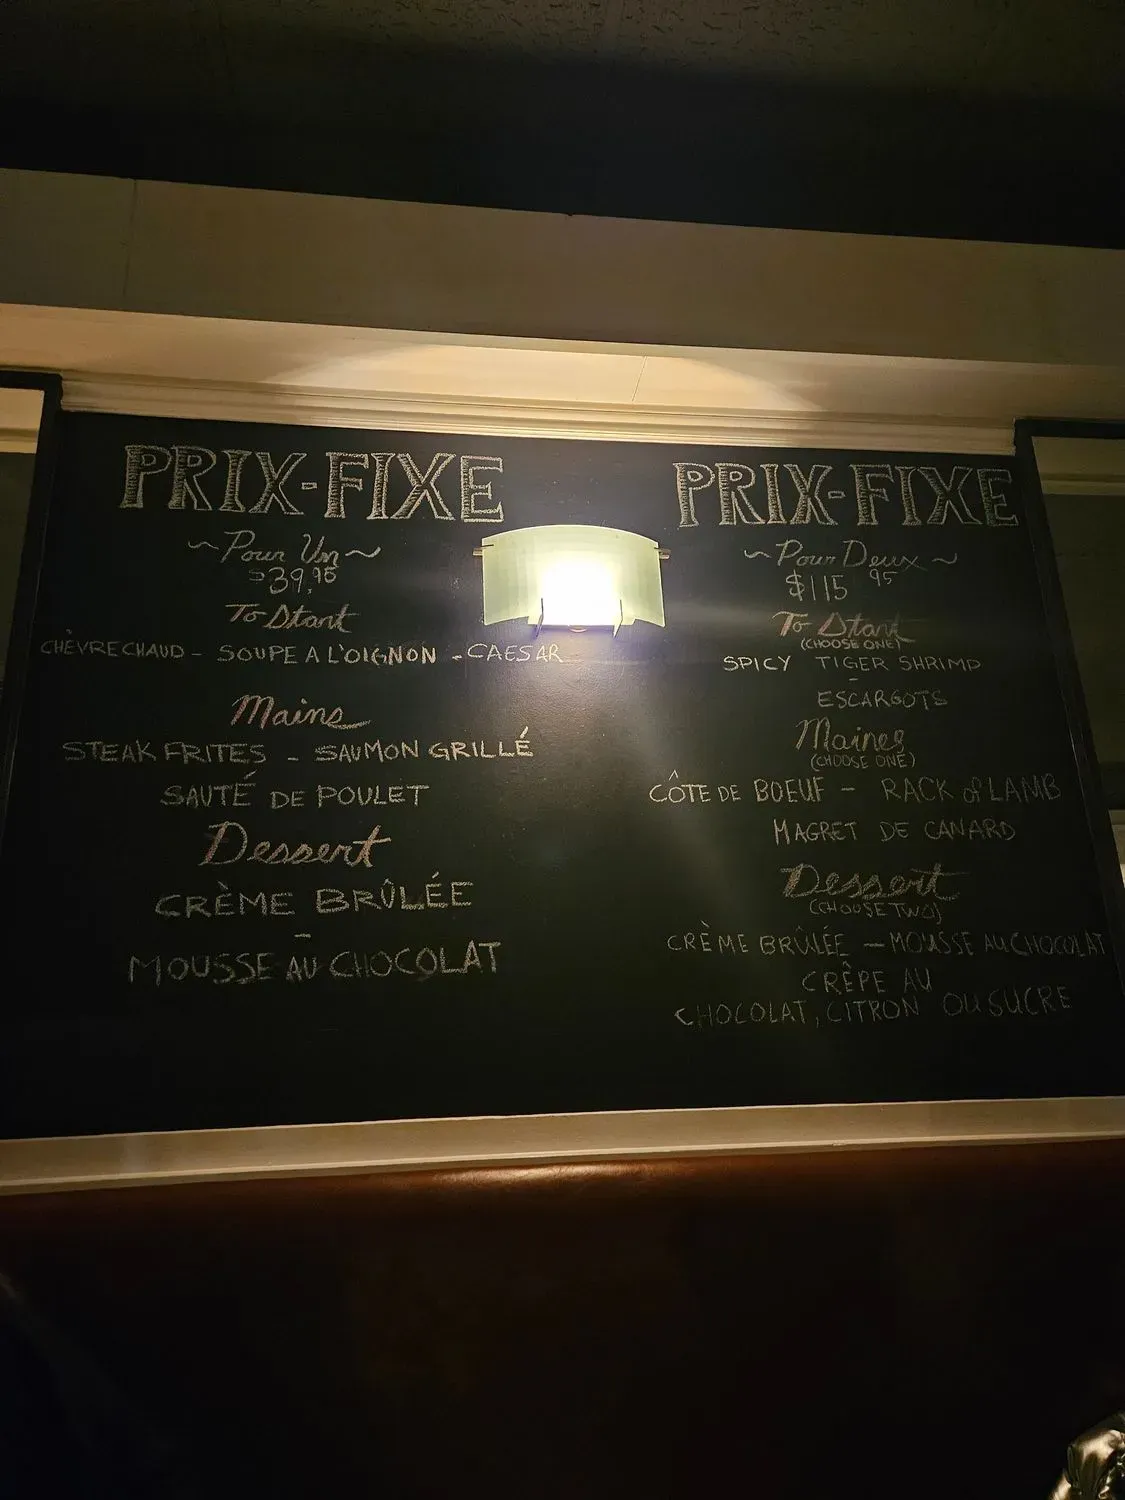 PRIX-FIXE
~Pour Un~
$39.95
To Start
CHÈVRE CHAUD - SOUPE A L'OIGNON - CAESAR
Mains
STEAK FRITES - SAUMON GRILLÉ
SAUTÉ DE POULET
Dessert
CRÈME BRÛLÉE
-
MOUSSE AU CHOCOLAT
PRIX-FIXE
~Pour Deux~
$115 95
To Start
(CHOOSE ONE)
SPICY TIGER SHRIMP
-
ESCARGOTS
Maines
(CHOOSE ONE)
CÔTE DE BOEUF - RACK of LAMB
MAGRET DE CANARD
Dessert
(CHOOSE TWO)
CRÈME BRÛLÉE - MOUSSE AU CHOCOLAT
CRÊPE AU
CHOCOLAT, CITRON OU SUCRE